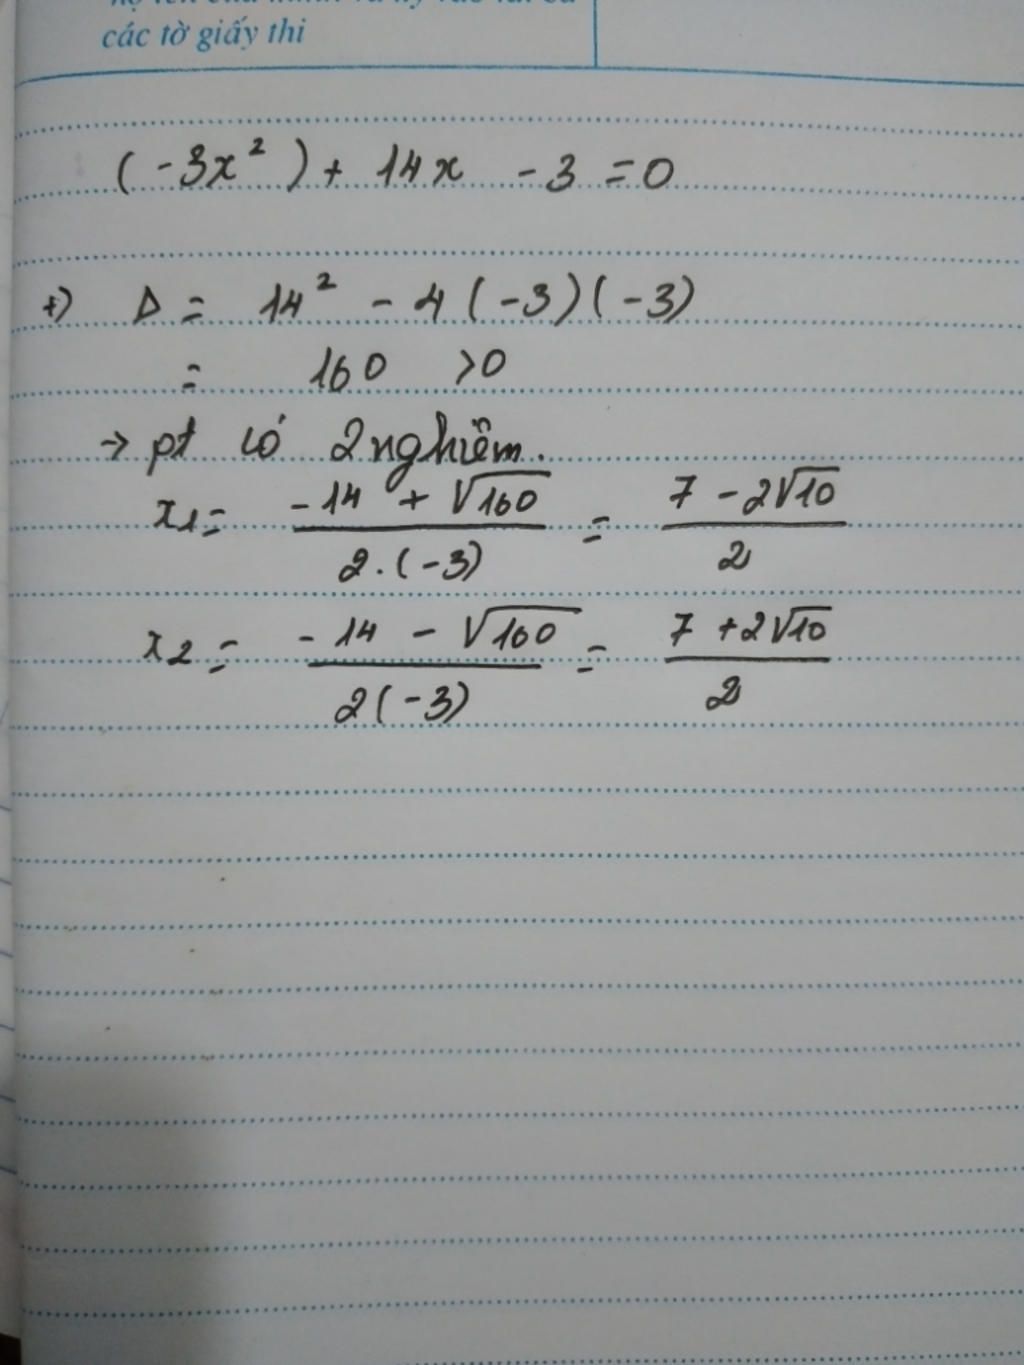 các tờ giấy thi
(-3x²) + 14x - 3 = 0
+) Δ = 14² - 4(-3)(-3)
= 160 >0
→ pt có 2 nghiệm.
x₁ = (-14 + √160)/(2.(-3)) = (7 - 2√10)/2
x₂ = (-14 - √160)/(2(-3)) = (7 + 2√10)/2